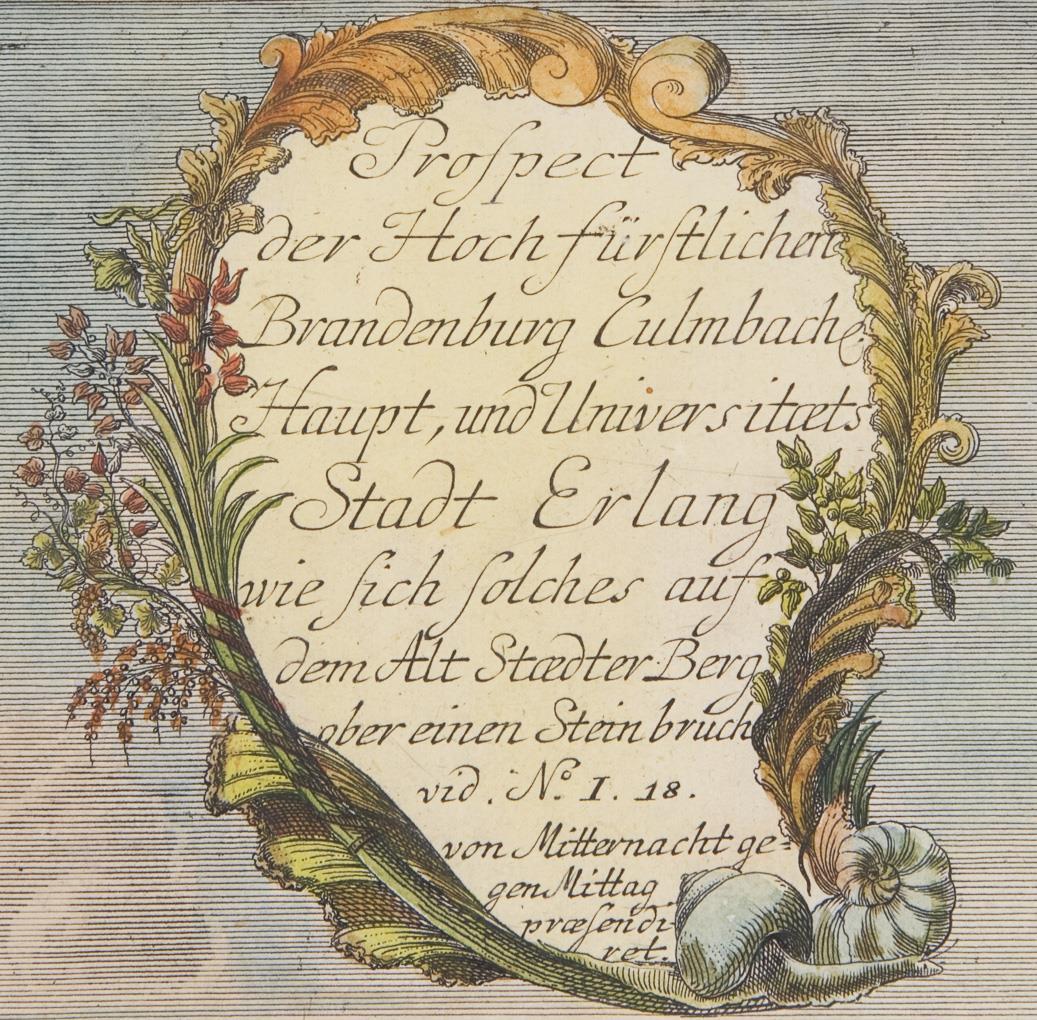 Proſpect
der Hochfürſtlichen
Brandenburg Culmbach:
Haupt, und Universitæts
Stadt Erlang
wie ſich ſolches auf
dem Alt Stædter Berg
ober einen Steinbruch
vid. No. I. 18.
von Mitternacht ge=
gen Mittag
præſendi-
ret.